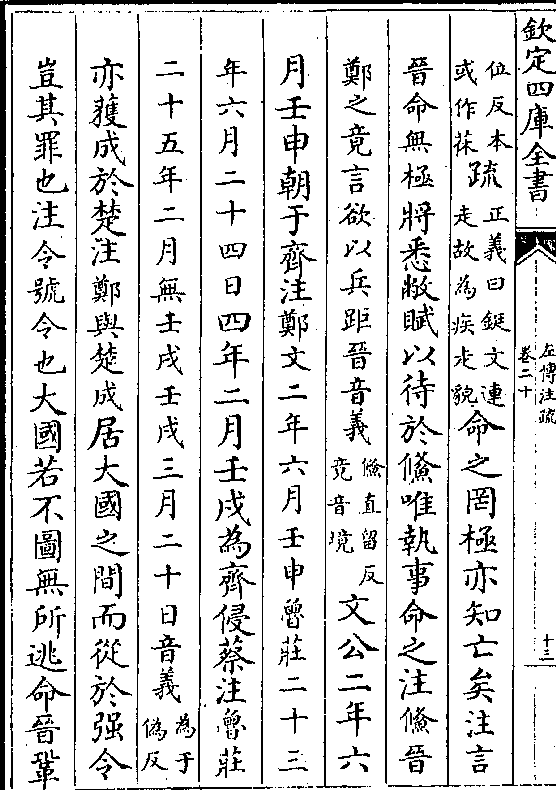 欽定四庫全書
左傳注疏
卷二十
十三
位反本
或作莯疏正義曰鋌文連
走故為疾走貌命之罔極亦知亡矣注言
晉命無極將悉敝賦以待於鯈唯執事命之注鯈晉
鄭之竟言欲以兵距晉音義鯈直留反
竟音境文公二年六
月壬申朝于齊注鄭文二年六月壬申魯莊二十三
年六月二十四日四年二月壬戌為齊侵蔡注魯莊
二十五年二月無壬戌壬戌三月二十日音義為于
偽反
亦獲成於楚注鄭與楚成居大國之間而從於强令
豈其罪也注令號令也大國若不圖無所逃命晉鞏